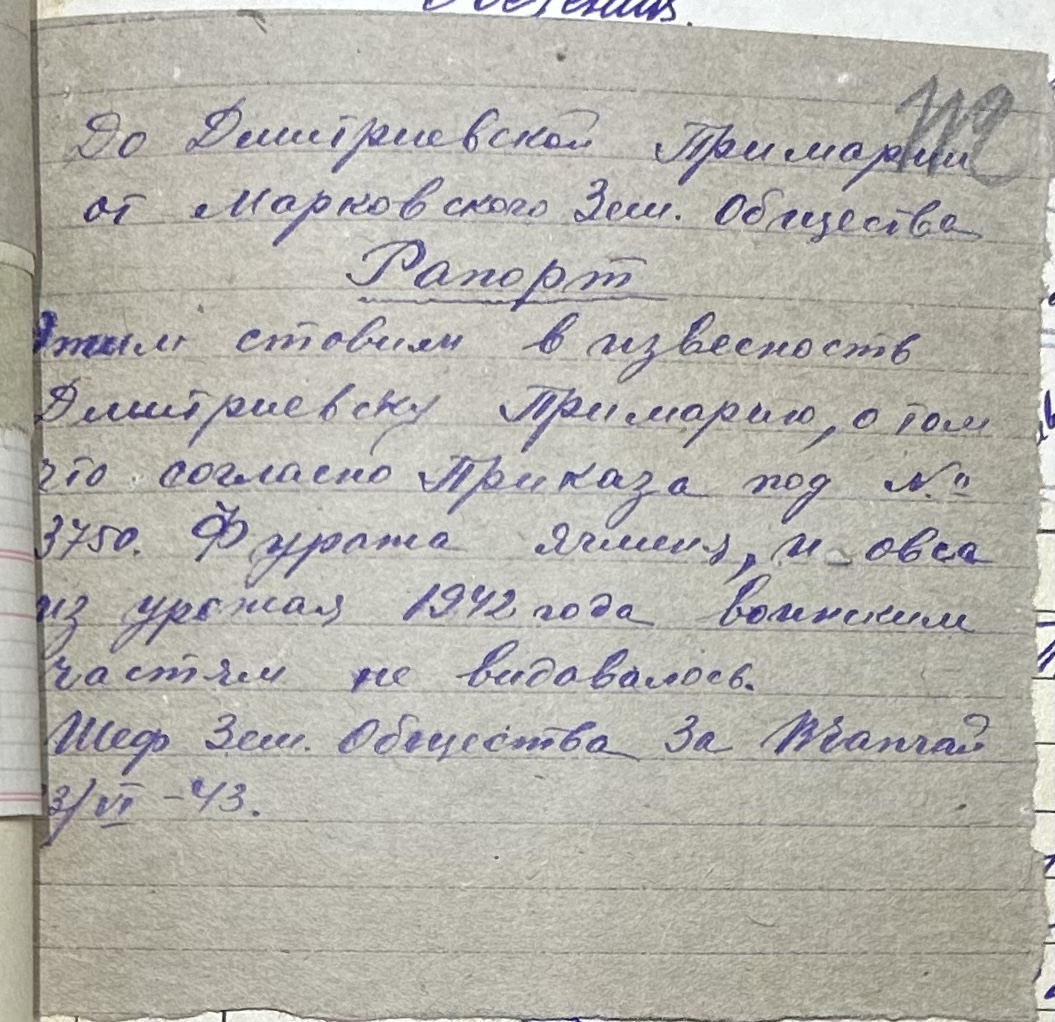 112
До Дмитриевской Примарии
от Марковского Зем. Общества
Рапорт
Этим ставим в извесность
Дмитриевску Примарию, о том
что согласно Приказа под №
3750. Фуража ячменя, и овса
из урожая 1942 года воинским
частям не видавалось.
Шеф Зем. Общества За
3/VI-43.